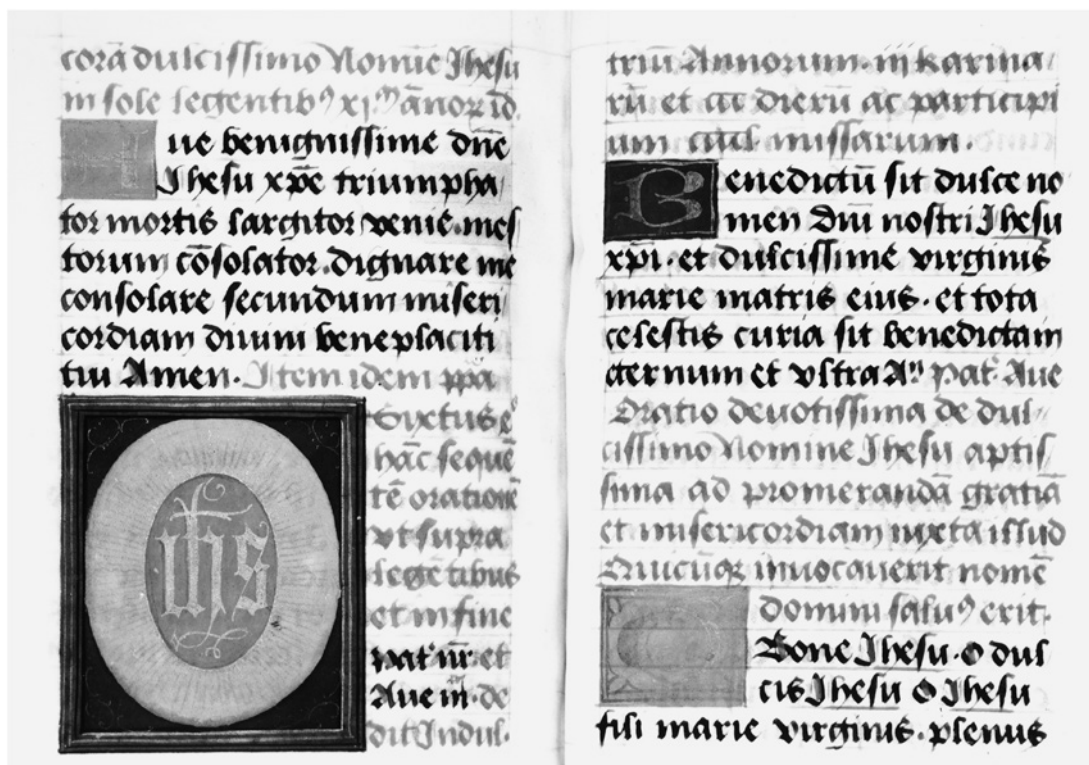 corā dulcissimo Nomīe Jhesu
in sole legentibꝰ xjᵐ ānoꝝ id.
Aue benignissime dn̄e
Jhesu xp̄e triumpha
tor mortis largitor venie. mes
torum cōsolator. dignare me
consolare secundum miseri
cordiam diuini beneplaciti
tui Amen. Item idem ppa
Sixtus
hāc sequē
tē orationē
vt supra
legētibus
et in fine
pat nr̄ et
Aue m. de
dit Indul.
triū Annorum. iij karina
rū et dierū ac participi
um missarum.
Benedictū sit dulce no
men Dn̄i nostri Jhesu
xp̄i. et dulcissime virginis
marie matris eius. et tota
celestis curia sit benedicta in
eternum et vltra Aᵐ Pat Aue
Oratio deuotissima de dul
cissimo Nomine Jhesu aptis
sima ad promerandā gratiā
et misericordiam iuxta illud
Quicūqꝫ inuocauerit nomē
domini saluꝰ erit.
O Bone Jhesu. o dul
cis Jhesu O Jhesu
fili marie virginis. plenus
ihs